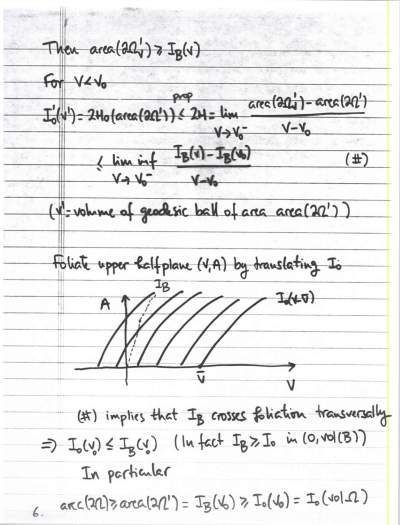 Then area(∂Ω'_V) ≥ I_B(V)
For V<V₀
prop
I₀'(V') = 2H₀(area(∂Ω')) ≤ 2H = lim_{V→V₀⁻} (area(∂Ω'_V) − area(∂Ω')) / (V−V₀)
≤ lim inf_{V→V₀⁻} (I_B(V) − I_B(V₀)) / (V−V₀) (#)
(V'=volume of geodesic ball of area area(∂Ω'))
Foliate upper halfplane (V,A) by translating I₀
I_B
A I₀(V-V̄)
V̄
V
(#) implies that I_B crosses foliation transversally
⇒ I₀(V₀) ≤ I_B(V₀) (In fact I_B ≥ I₀ in (0,vol(B))
In particular
area(∂Ω) ≥ area(∂Ω') = I_B(V₀) ≥ I₀(V₀) = I₀(vol Ω)
6.